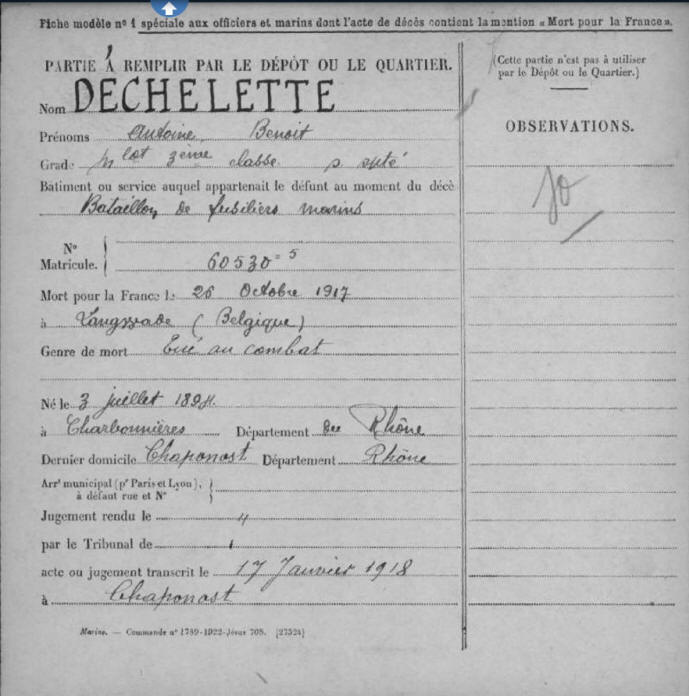 Fiche modèle n° 1 spéciale aux officiers et marins dont l'acte de décès contient la mention « Mort pour la France ».
PARTIE À REMPLIR PAR LE DÉPÔT OU LE QUARTIER.
Nom DECHELETTE
Prénoms Antoine Benoit
Grade Mlot 3ème classe s spté
Bâtiment ou service auquel appartenait le défunt au moment du décè
Bataillon de fusiliers marins
N°
Matricule. 60530 = 5
Mort pour la France le 26 Octobre 1917
à (Belgique)
Genre de mort Tué au combat
Né le 3 juillet 1894
à Charbonnières Département du Rhône
Dernier domicile Chaponost Département Rhône
Arrt municipal (pr Paris et Lyon),
à défaut rue et N°
Jugement rendu le "
par le Tribunal de
acte ou jugement transcrit le 17 Janvier 1918
à Chaponost
Marine. — Commande n° 1789-1922-Jésus 708. [27524]
(Cette partie n'est pas à utiliser
par le Dépôt ou le Quartier.)
OBSERVATIONS.